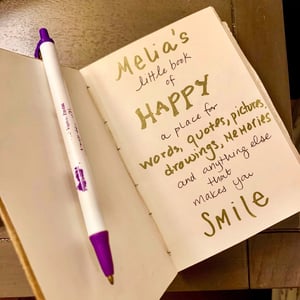 Melia's
little book
of
HAPPY
a place for
words, quotes, pictures,
drawings, MeMories
and anything else
that
makes you
Smile